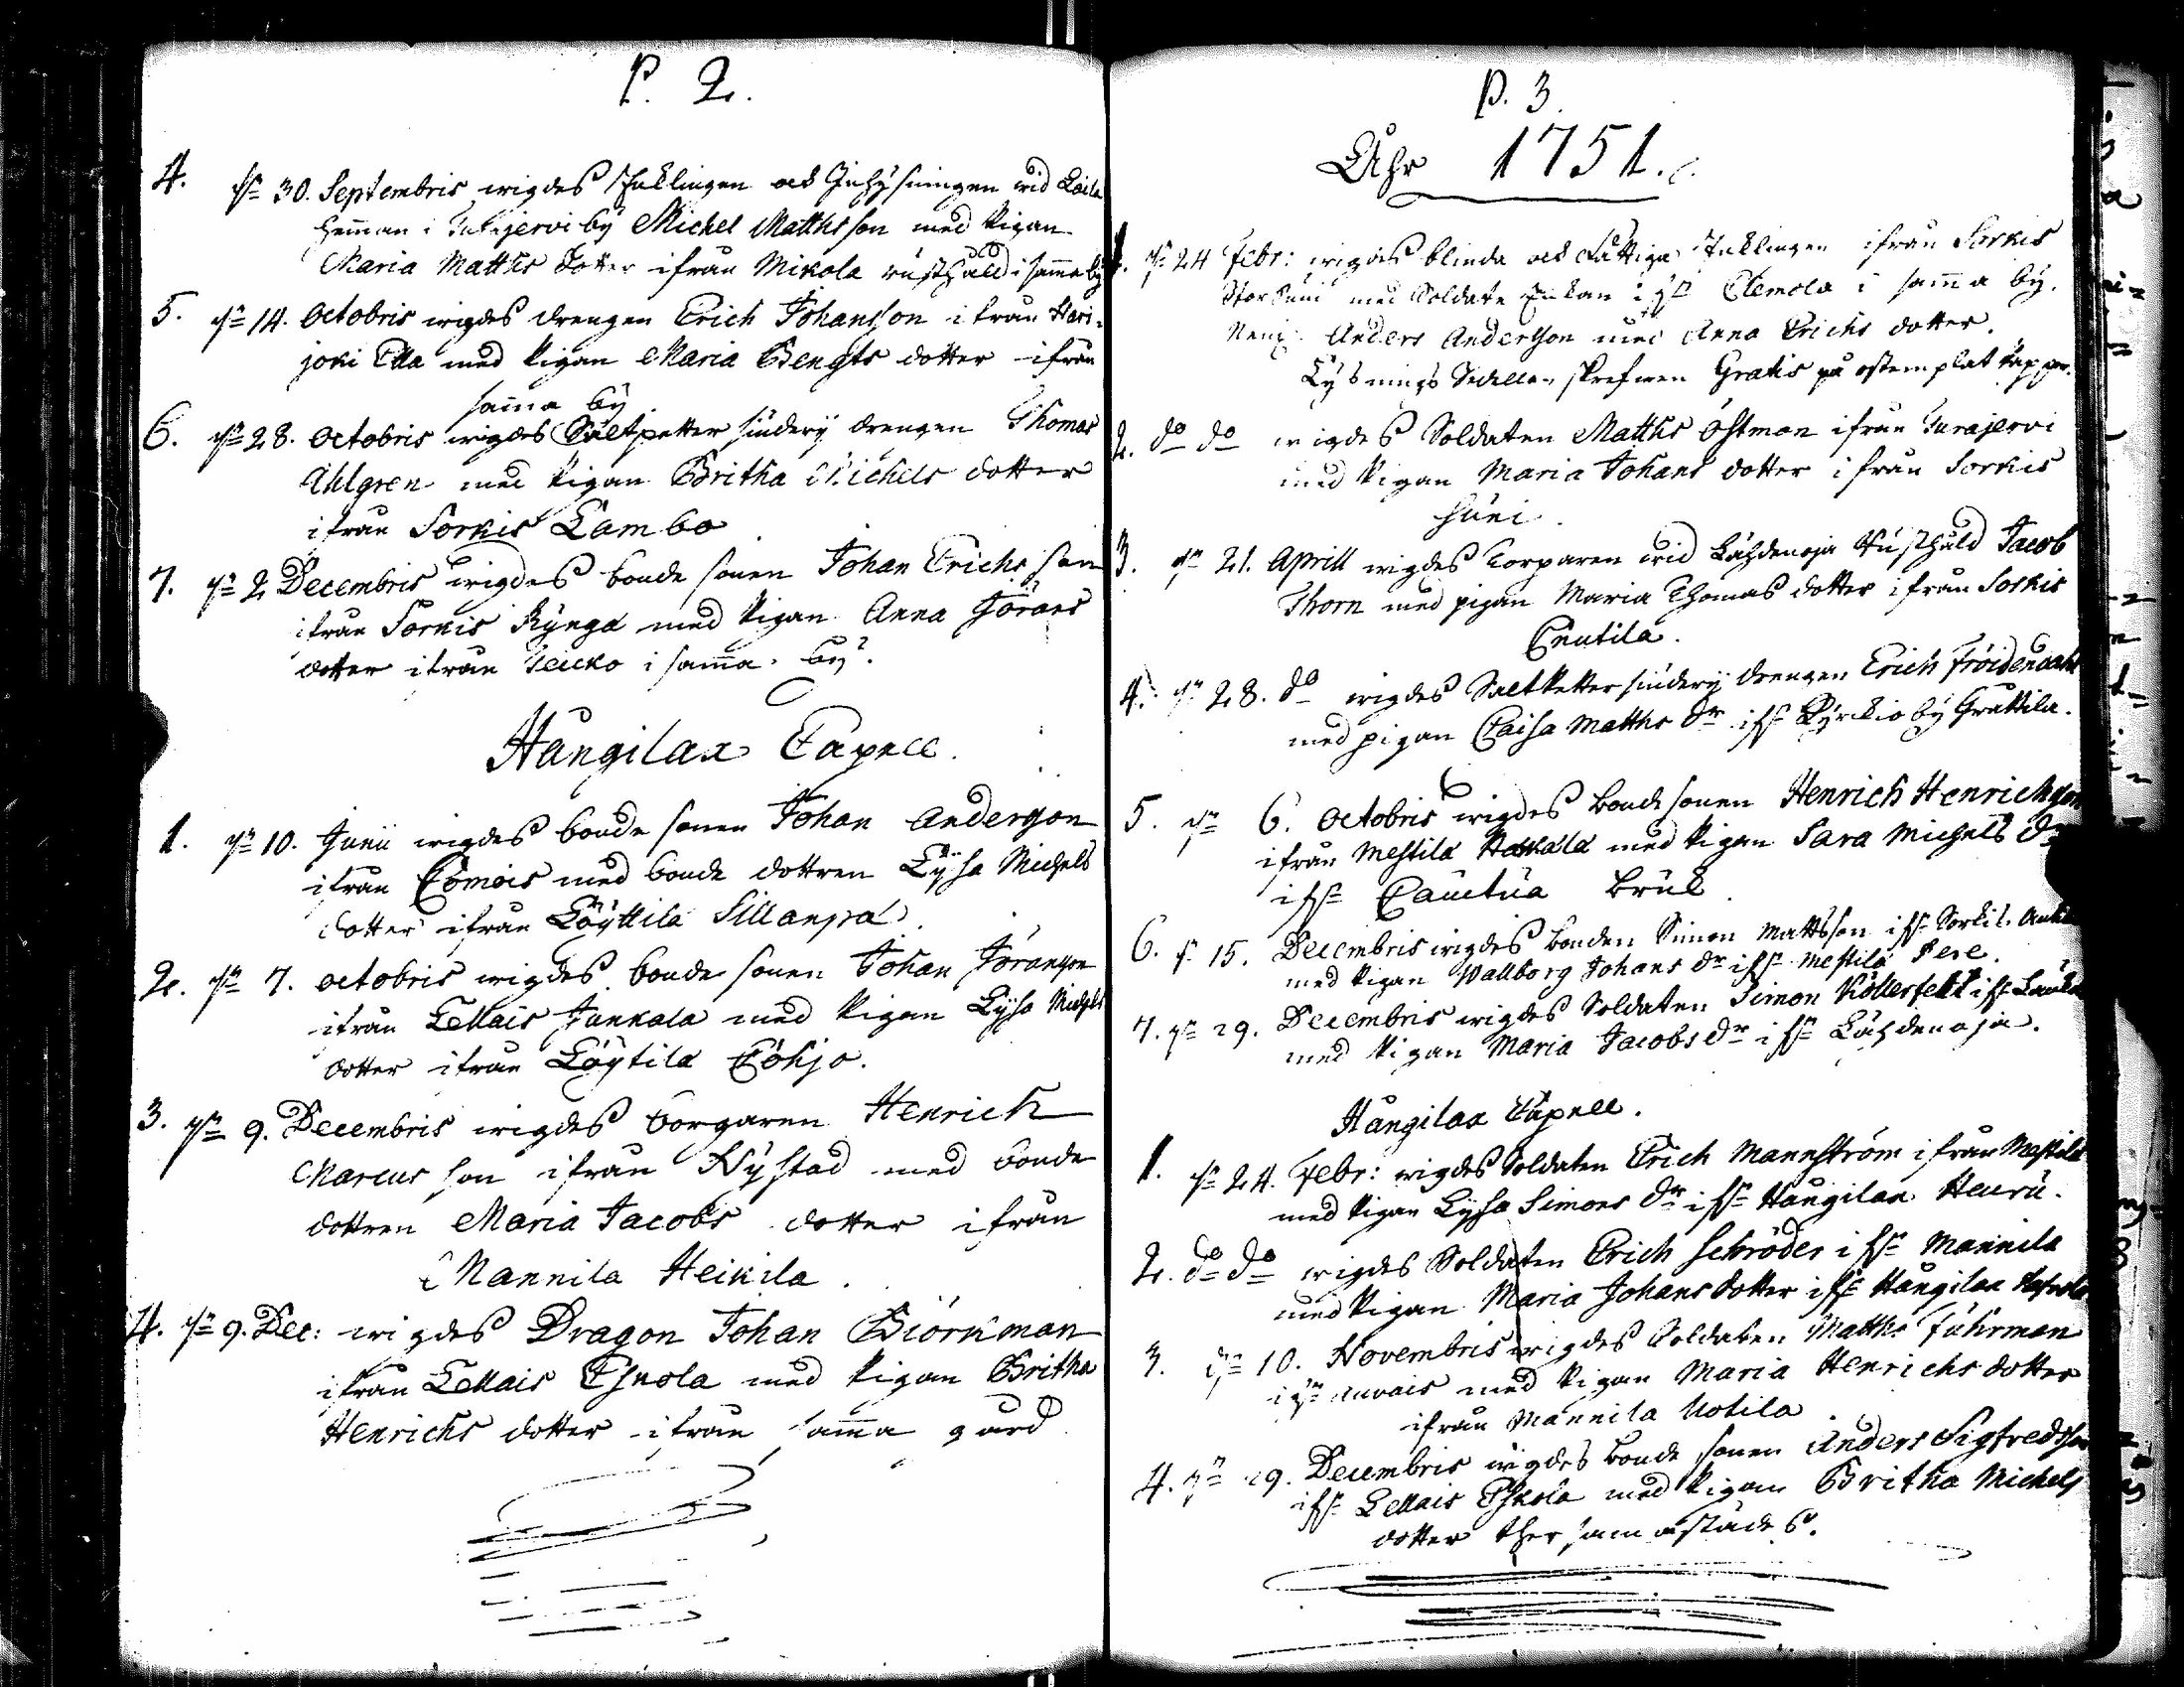 P. 2.
4. dn 30. Septembris wigdes Inhysningen wid
hemman i by Michel Matthsson med Pigan
Maria Matths dotter ifrån Mikola rusthåld i samma by
5. dn 14. Octobris wigdes drengen Erich Johansson ifrån Hari-
joki Ella med Pigan Maria Bengts dotter ifrån
samma by
6. dn 28. Octobris wigdes Saltpetter siuderij drengen Thomas
Ahlgren med Pigan Britha Michels dotter
ifrån Sorkis Lambo
7. dn 2 Decembris wigdes bonde sonen Johan Erichs son
ifrån Sorkis Rynga med Pigan Anna Jörans
dotter ifrån i samma by.
Hångilax Capell.
1. dn 10. Junii wigdes bonde sonen Johan Andersson
ifrån Eomois med bonde dottren Lysa Michels
dotter ifrån Löyttilä Sillanpä.
2. dn 7. octobris wigdes bonde sonen Johan Jöransson
ifrån Lellais Junkala med Pigan Lysa Michels
dotter ifrån Löytilä Cohjo.
3. dn 9. Decembris wigdes borgaren Henrich
Marcus son ifrån Nystad med bonde
dottren Maria Jacobs dotter ifrån
Mannila Heikila.
4. dn 9. Dec: wigdes Dragon Johan Biörkman
ifrån Lellais Eskola med Pigan Britha
Henrichs dotter ifrån samma gård
P. 3
Åhr 1751.
1. dn 24 Febr: wigdes blinda och fattiga Inhlingen ifrån Sorkis
Storsuni med Soldate Enkan ifn Clemola i samma by.
Anders Andersson med Anna Erichs dotter.
Lysnings Sedellen skrefwen Gratis på ostemplat papper.
2. do do wigdes Soldaten Matths Östman ifrån Turajervi
med Pigan Maria Johans dotter ifrån Sorkis
Suni.
3. dn 21. Aprill wigdes Torparen wid Lähdenoja Rusthåld Jacob
Thorn med pigan Maria Thomas dotter ifrån Sorkis
Cnutila.
4. dn 28. do wigdes Saltpetter siuderij drengen Erich
med pigan Caisa Matths dr ifn Kyrckio by Gruttila.
5. dn 6. Octobris wigdes bonde sonen Henrich Henrichsson
ifrån Mestilä med Pigan Sara Michels dr
ifn Cauttua Bruk
6. d 15. Decembris wigdes bonden Simon Mattsson ifn Sorkis
med Pigan Wallborg Johans dr ifn Mestilä Pere.
7. dn 29. Decembris wigdes Soldaten Simon ifn
med Pigan Maria Jacobs dr ifn Lähdenoja.
Hångilax Capell.
1. dn 24. Febr: wigdes Soldaten Erich Mannström ifrån Mestilä
med Pigan Lysa Simons dr ifn Hångilax
2. do do wigdes Soldaten Erich Schröder ifn Mannila
med Pigan Maria Johans dotter ifn Hångilax
3. dn 10. Novembris wigdes Soldaten Matths Fuhrman
ifn Auvais med Pigan Maria Henrichs dotter
ifrån Mannila Uotila.
4. dn 29. Decembris wigdes bonde sonen Anders Sigfredsson
ifn Lellais Eskola med Pigan Britha Michels
dotter ther samastädes.